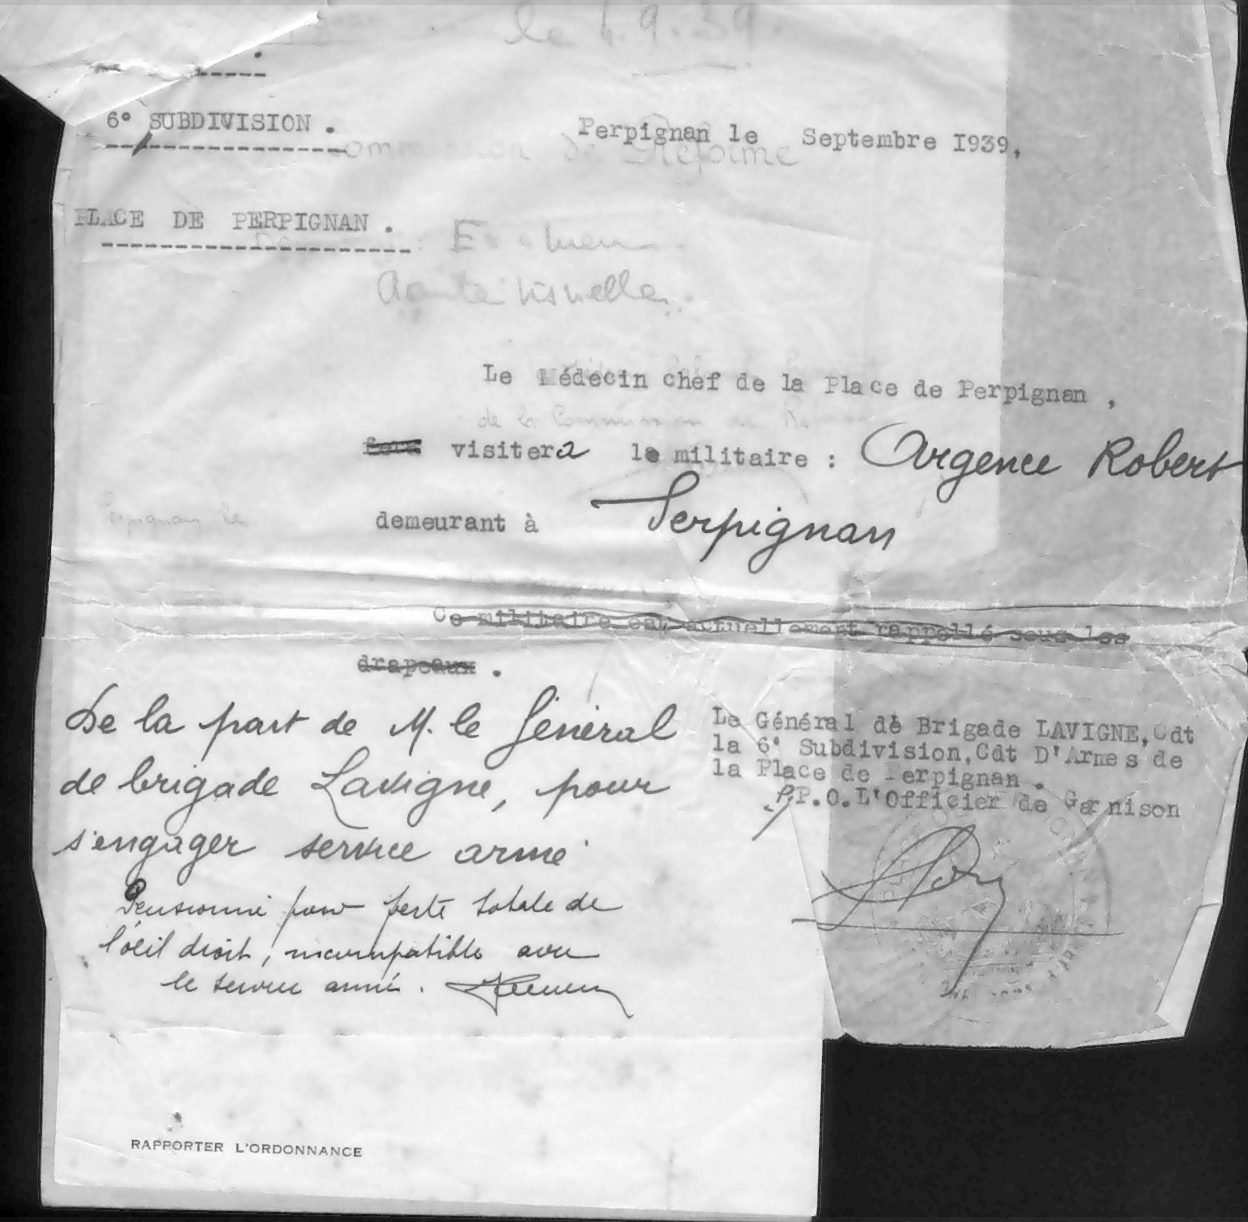 le 4.9.39.
6° SUBDIVISION.
Perpignan le Septembre I939,
Commission de Réforme
PLACE DE PERPIGNAN.
Examen
Acuité visuelle.
Le Médecin chef de la Place de Perpignan,
de la Commission de
fera visitera le militaire : Argence Robert
Perpignan le
demeurant à Perpignan
Ce militaire est actuellement rappellé sous les
drapeaux.
De la part de M. le Général
de brigade Lavigne, pour
s'engager service armé
Le Général de Brigade LAVIGNE, Cdt
la 6° Subdivision, Cdt D'Armes de
la Place de Perpignan.
P.O. L'Officier de Garnison
Pensionné pour perte totale de
l'oeil droit, incompatible avec
le service armé.
RAPPORTER L'ORDONNANCE